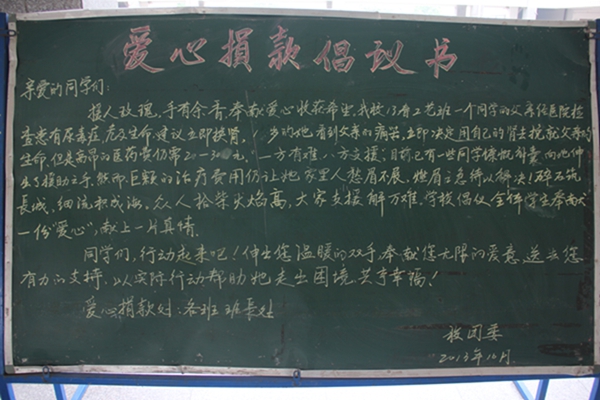 爱心捐款倡议书
亲爱的同学们:
授人玫瑰,手有余香,奉献爱心,收获希望,我校13春工艺班一个同学的父亲经医院检
查患有尿毒症,危及生命,建议立即换肾。八岁的她看到父亲的病哭,立即决定用自己的肾去挽救父亲的
生命,但是高昂的医药费仍需20-30万元,一方有难,八方支援;目前已有一些同学慷慨解囊,向她伸
出了援助之手,然而巨额的治疗费用仍让她家里人愁眉不展,燃眉之急得以解决!碎石筑
长城,细流积成海。众人拾柴火焰高,大家支援解万难。学校倡仪全体学生奉献
一份爱心,献上一片真情。
同学们,行动起来吧!伸出您温暖的双手,奉献您无限的爱意,送去您
有力的支持,以实际行动帮助她走出困境,共享幸福!
爱心捐款处:各班班长处
校团委
2013年10月